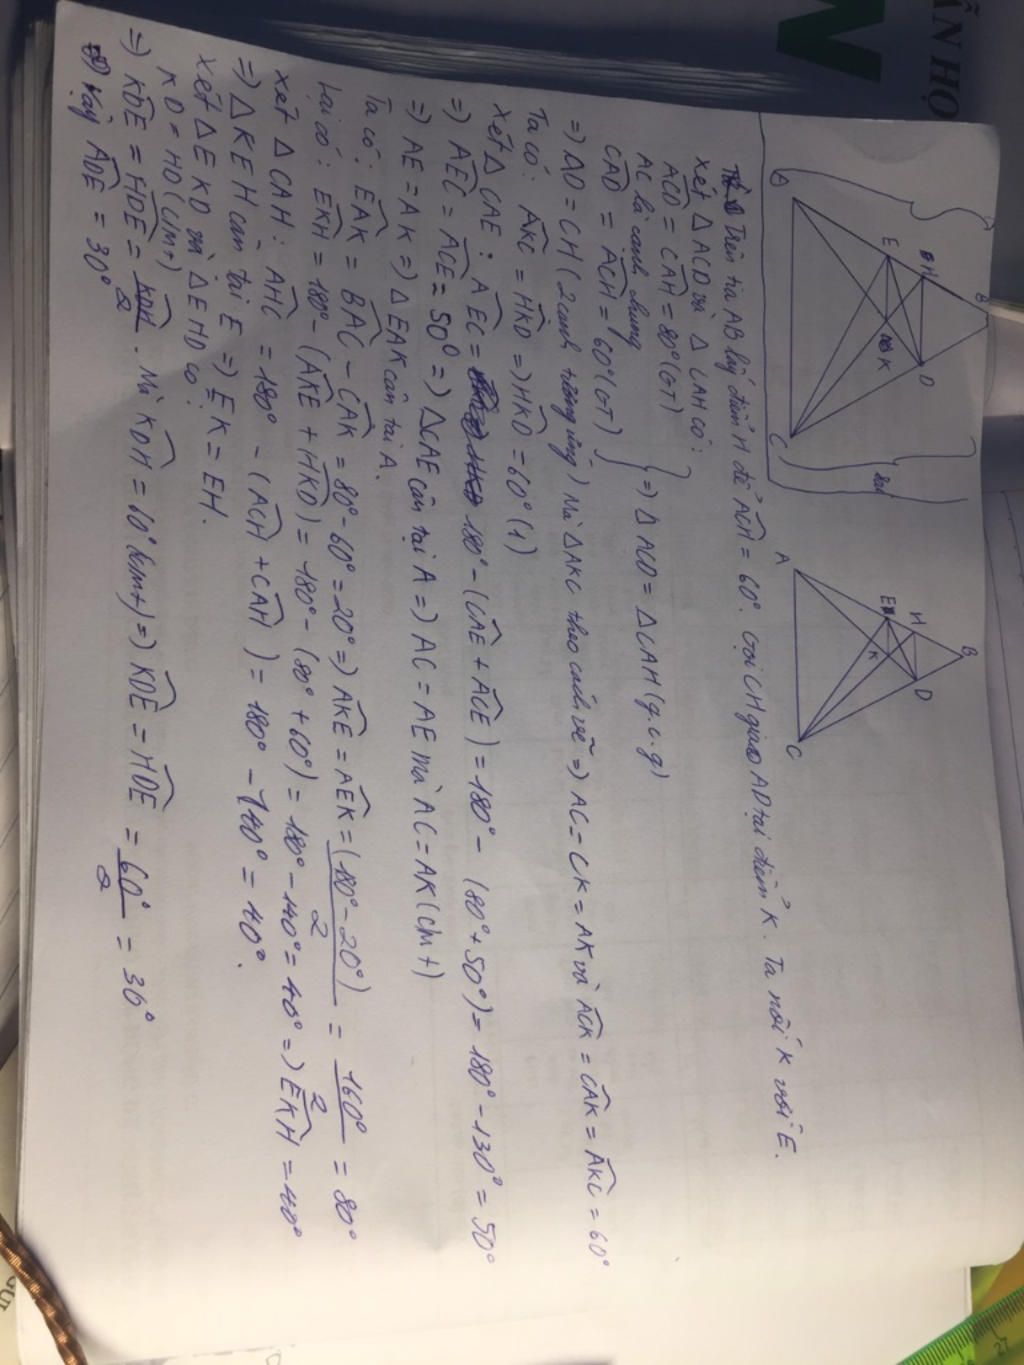 ĂN HỌ
B
H
E
K
D
C
sai
A
E
H
B
K
D
C
Trên tia AB lấy điểm H để ACH = 60°. Gọi CH giao AD tại điểm K. Ta nối K với E.
Xét ΔACD và ΔCAH có:
ACD = CAH = 80° (GT)
AC là cạnh chung
CAD = ACH = 60° (GT)
=) ΔACD = ΔCAH (g.c.g)
=) AD = CH (2 cạnh tương ứng) Mà ΔAKC theo cách vẽ =) AC = CK = AK và ACK = CAK = AKC = 60°
Ta có: AKC = HKD =) HKD = 60° (1)
Xét ΔCAE: AEC = 180° - (CAE + ACE) = 180° - (80° + 50°) = 180° - 130° = 50°
=) AEC = ACE = 50° =) ΔCAE cân tại A =) AC = AE mà AC = AK (cmt)
=) AE = AK =) ΔEAK cân tại A.
Ta có: EAK = BAC - CAK = 80° - 60° = 20° =) AKE = AEK = (180° - 20°)/2 = 160°/2 = 80°
Lại có: EKH = 180° - (AKE + HKD) = 180° - (80° + 60°) = 180° - 140° = 40° =) EKH = 40°
Xét ΔCAH: AHC = 180° - (ACH + CAH) = 180° - 140° = 40°.
=) ΔKEH cân tại E =) EK = EH.
Xét ΔEKD và ΔEHD có:
KD = HD (cmt)
=) KDE = HDE = KDH/2. Mà KDH = 60° (cmt) =) KDE = HDE = 60°/2 = 30°
Vậy ADE = 30°
27